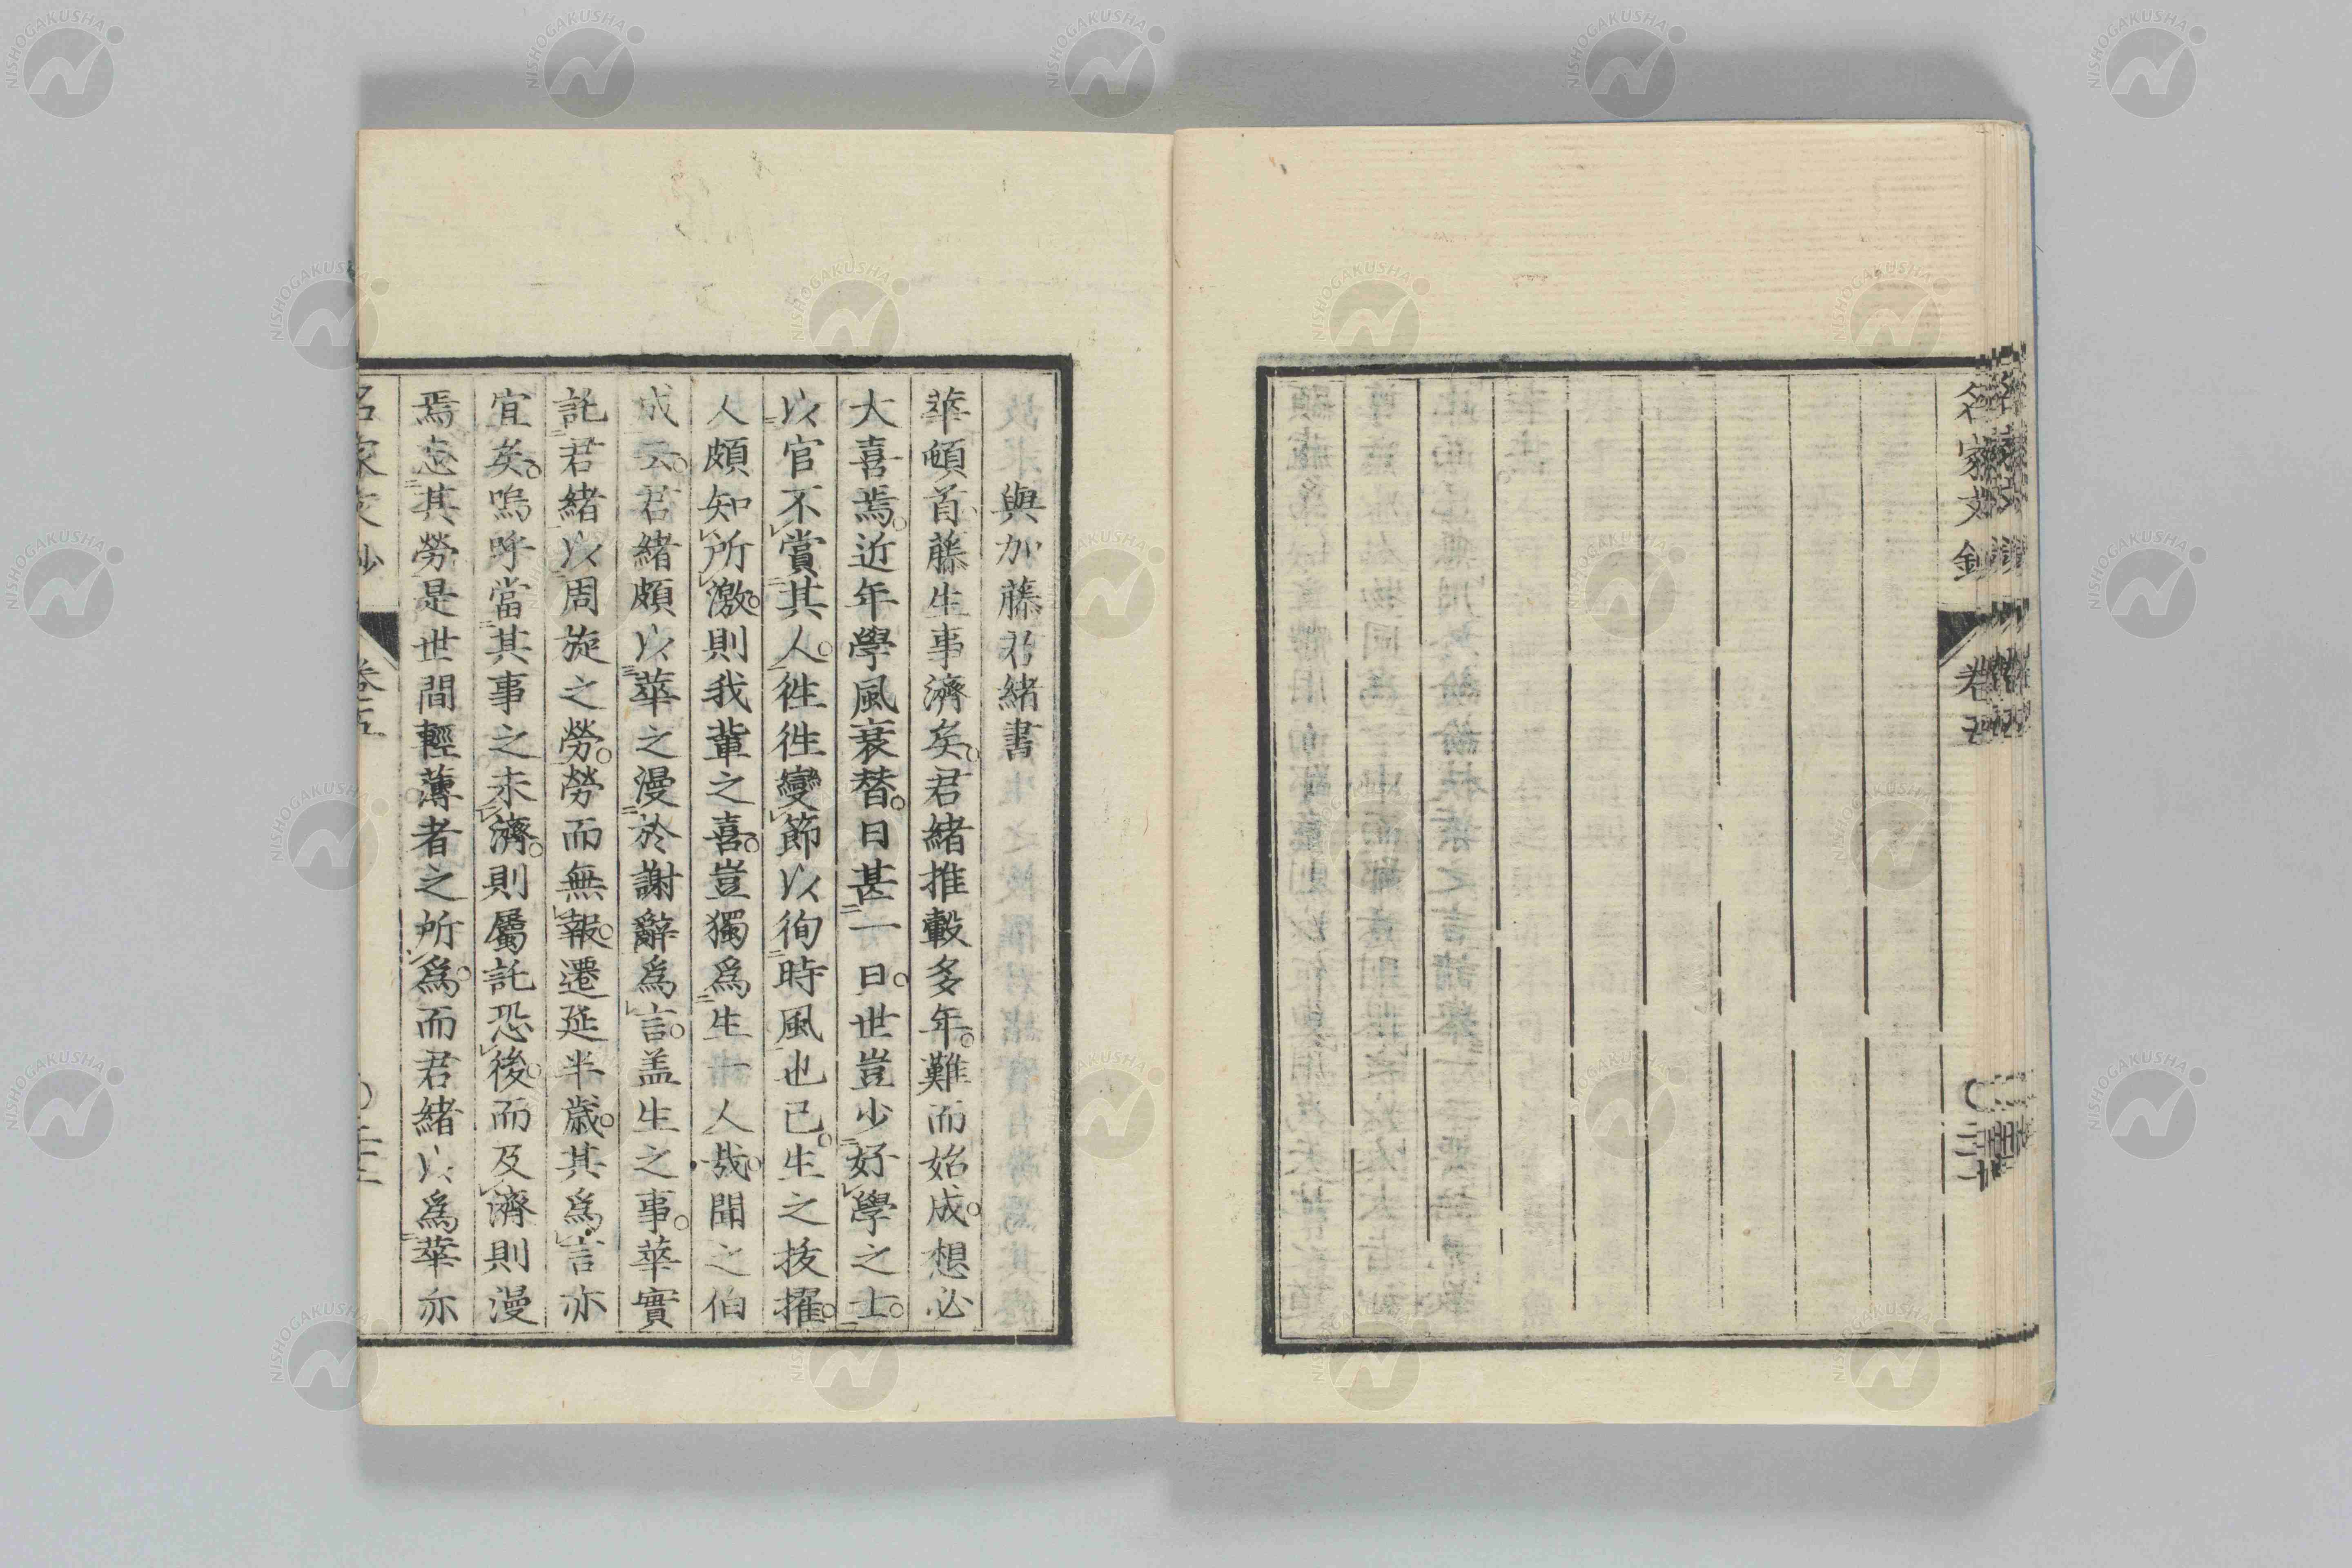 名家文鈔
卷五
與加藤君緖書
華頓首藤生事濟矣君緖推轂多年難而始成想必
大喜焉近年學風衰替日甚一日世豈少好學之士
以官不賞其人徃徃變節以徇時風也已生之抜擢
人頗知所激則我輩之喜豈獨爲生一人哉聞之伯
成云君緖頗以華之漫於謝辭爲言盖生之事華實
託君緖以周旋之勞勞而無報遷延半歳其爲言亦
宜矣嗚呼當其事之未濟則屬託恐後而及濟則漫
焉忘其勞是世間輕薄者之所爲而君緖以爲華亦
名家文鈔
卷五
NISHOGAKUSHA